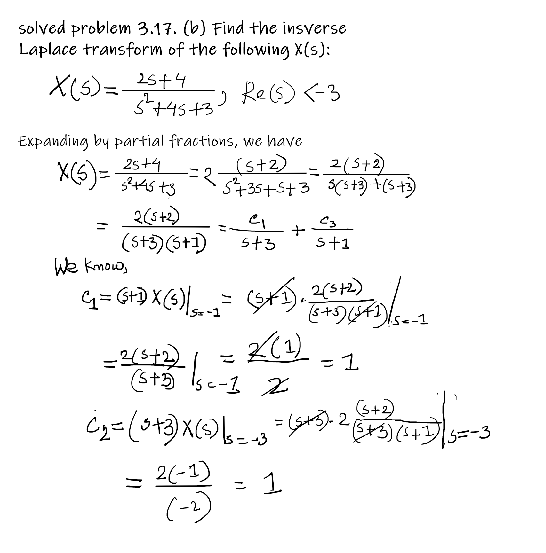 solved problem 3.17. (b) Find the insverse
Laplace transform of the following X(s):
X(s) = (2s+4)/(s²+4s+3), Re(s) <-3
Expanding by partial fractions, we have
X(s) = (2s+4)/(s²+4s+3) = 2 (s+2)/(s²+3s+s+3) = 2(s+2)/(s(s+3)+1(s+3))
= 2(s+2)/((s+3)(s+1)) = c₁/(s+3) + c₃/(s+1)
We know,
c₁ = (s+1) X(s)|s=-1 = (s+1) · 2(s+2)/((s+3)(s+1))|s=-1
= 2(s+2)/(s+3)|s=-1 = 2(1)/2 = 1
c₂ = (s+3) X(s)|s=-3 = (s+3) · 2 (s+2)/((s+3)(s+1))|s=-3
= 2(-1)/(-2) = 1